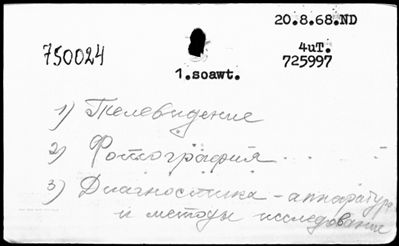 20.8.68.ND
750024
4uT.
725997
1.soawt.
1) Телевидение
2) Фотография...
3) Диагностика - аппаратура
и методы исследование